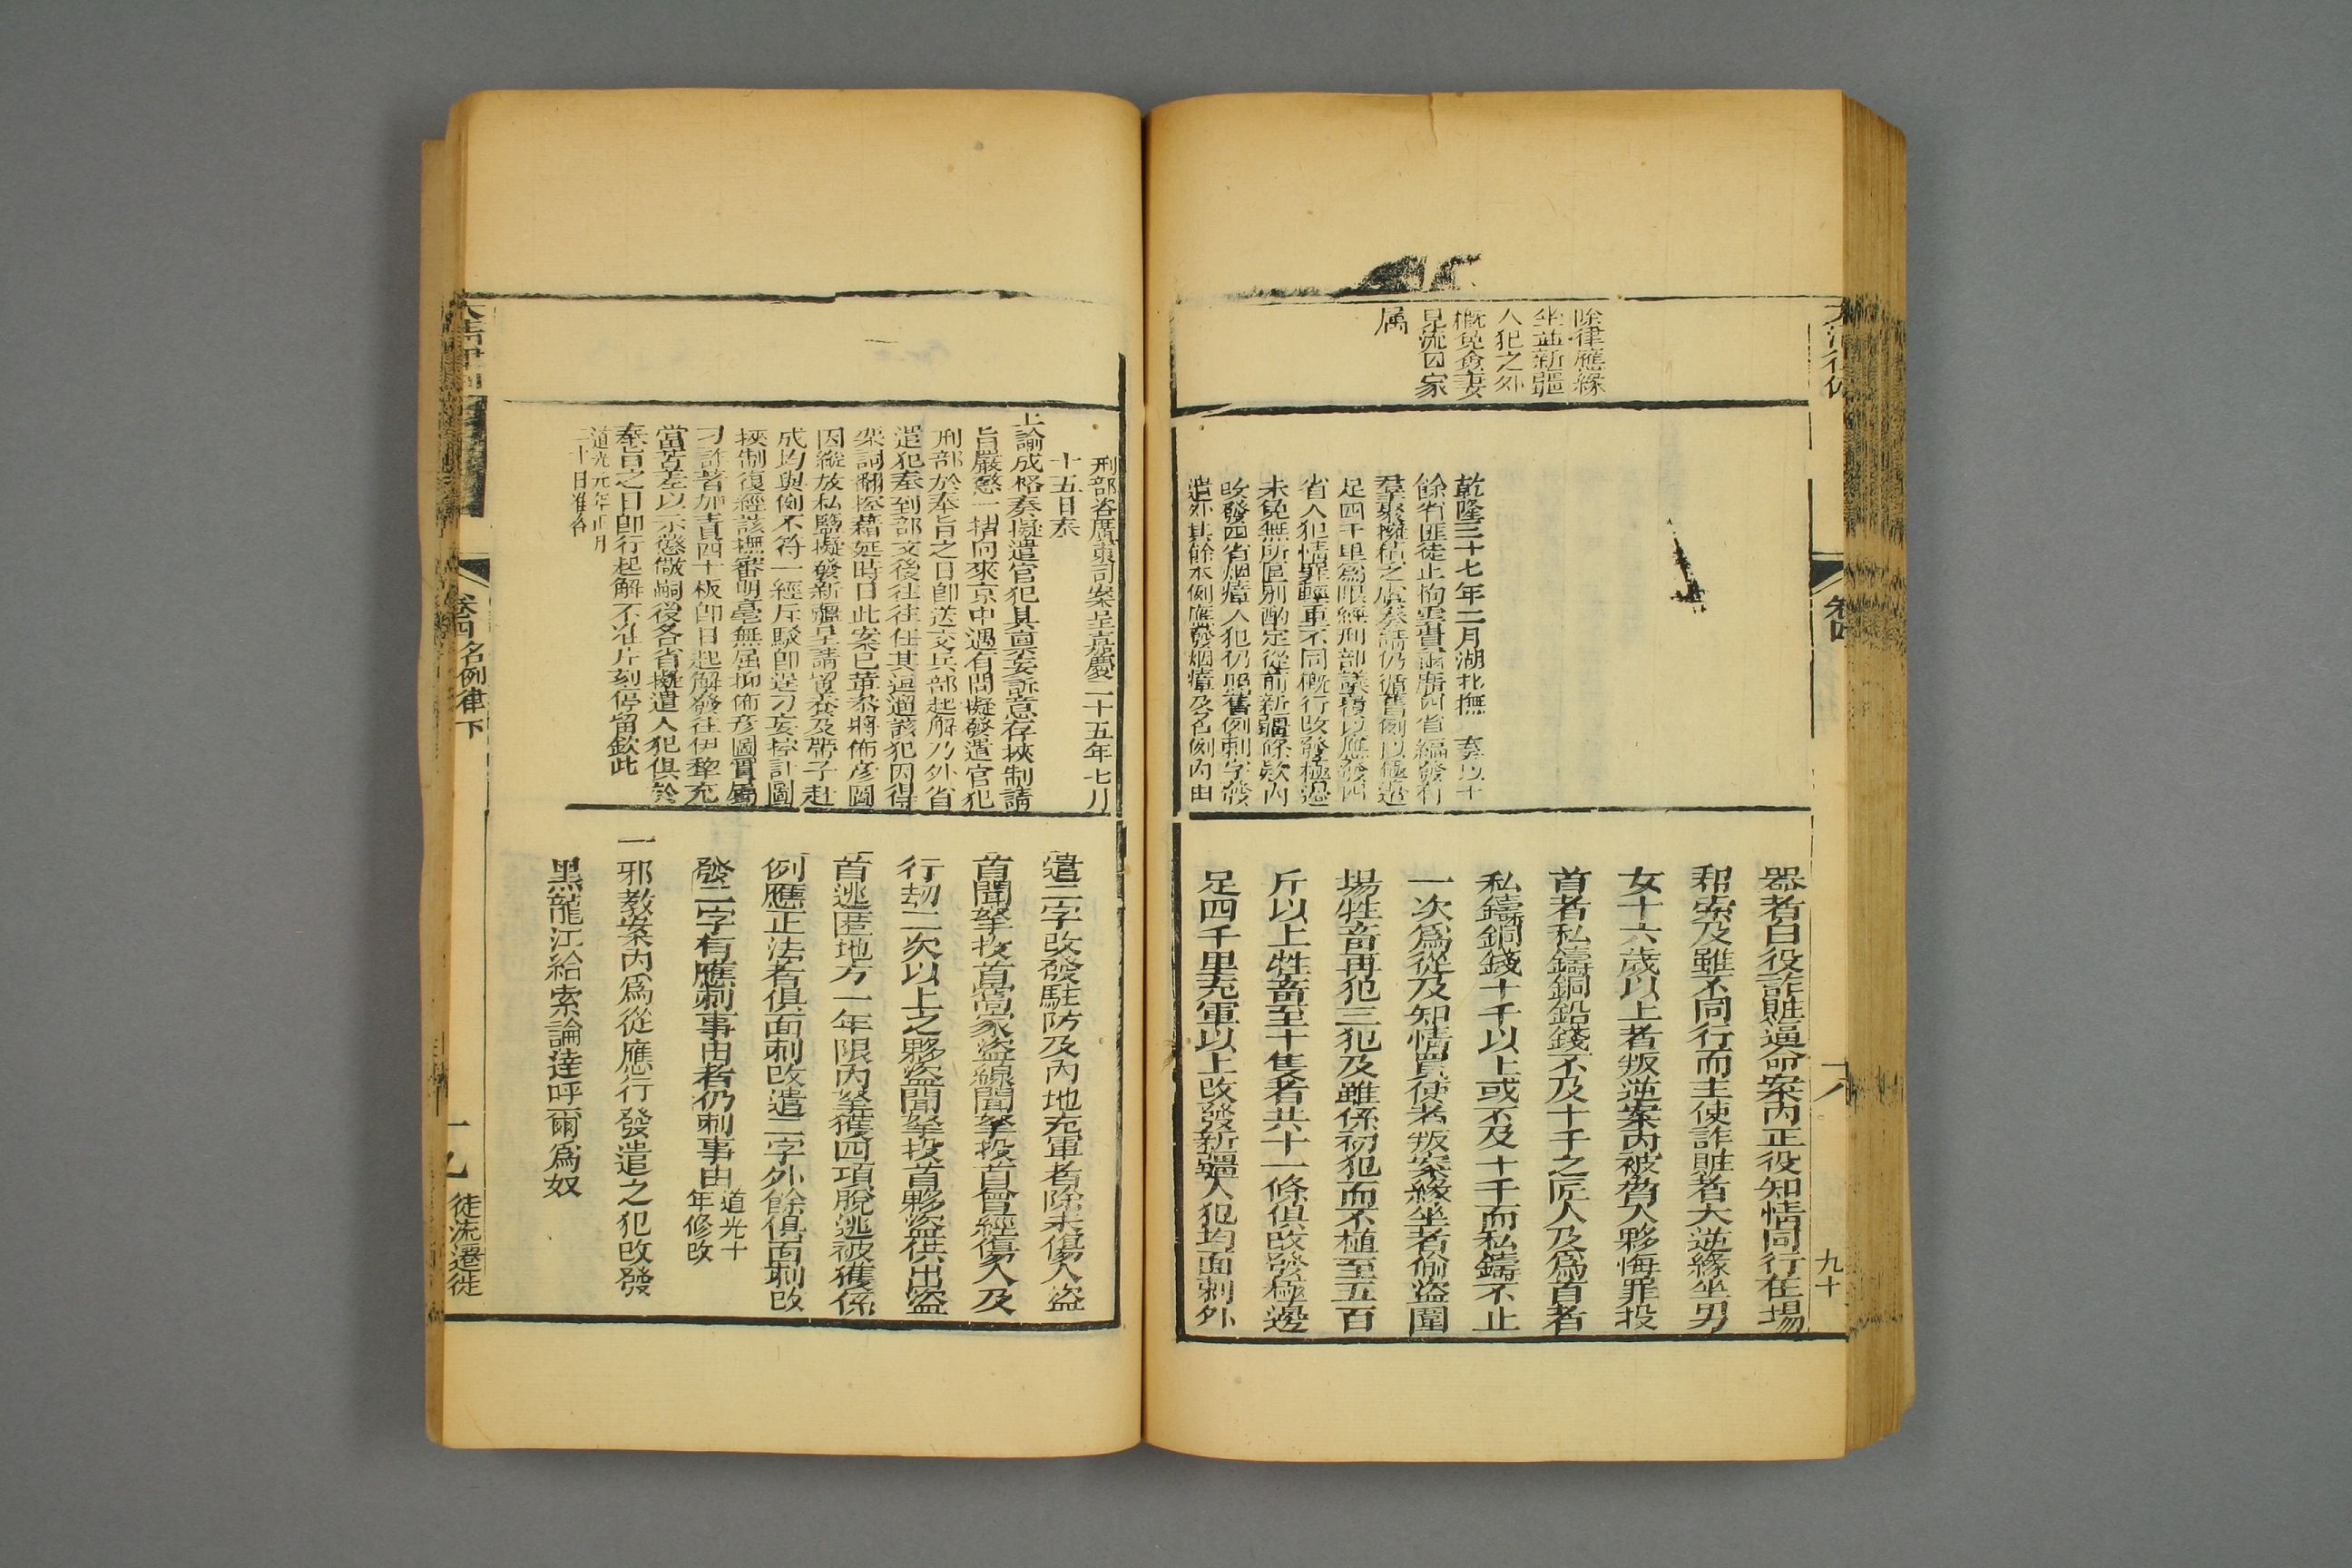 除律應緣
坐並新疆
人犯之外
概免僉妻
見流囚家
属
乾隆三十七年二月湖北撫 奏以十
餘省匪徒止拘雲貴兩廣四省編發有
羣聚擁積之虞奏請仍循舊例以極邊
足四千里爲限經刑部議覆以應發四
省人犯情罪輕重不同概行改發極邊
未免無所區別酌定從前新疆條欵內
改發四省烟瘴人犯仍照舊例刺字發
遣外其餘本例應發烟瘴及名例內由
器者白役詐賍逼命案內正役知情同行在場
帮索及雖不同行而主使詐賍者大逆緣坐男
女十六歲以上者叛逆案內被脅入夥悔罪投
首者私鑄銅鉛錢不及十千之匠人及爲首者
私鑄銅錢十千以上或不及十千而私鑄不止
一次爲從及知情買使者叛案緣坐者偷盜圍
場牲畜再犯三犯及雖係初犯而不植至五百
斤以上牲畜至十隻者共十一條俱改發極邊
足四千里充軍以上改發新疆人犯均面刺外
卷四
十八
九十
刑部咨廣東司案呈嘉慶二十五年七月
十五日奉
上諭成格奏擬遣官犯具稟妄訴意存挾制請
旨嚴懲一摺向來京中遇有問擬發遣官犯
刑部於奉旨之日即送交兵部起解乃外省
遣犯奉到部文後往往任其逗遛該犯因得
架詞翻控藉延時日此案已革泰將佈彦圖
因縱放私鹽擬發新疆呈請留養及帶子赴
成均與例不符一經斥駁即逞刁妄控計圖
挾制復經該撫審明毫無屈抑佈彦圖實屬
刁詐著加責四十板即日起解發往伊犂充
當苦差以示懲儆嗣後各省擬遣人犯俱於
奉旨之日即行起解不准片刻停留欽此
道光元年正月
二十日准咨
遣二字改發駐防及內地充軍者除未傷人盜
首聞拏投首當家盜線聞拏投首曾經傷人及
行刧二次以上之夥盜聞拏投首夥盜供出盜
首逃匿地方一年限內拏獲四項脫逃被獲係
例應正法者俱面刺改遣二字外餘俱面刺改
發二字有應刺事由者仍刺事由道光十
年修改
一邪教案內爲從應行發遣之犯改發
黑龍江給索論達呼爾爲奴
卷四名例律下
十九
徒流遷徙